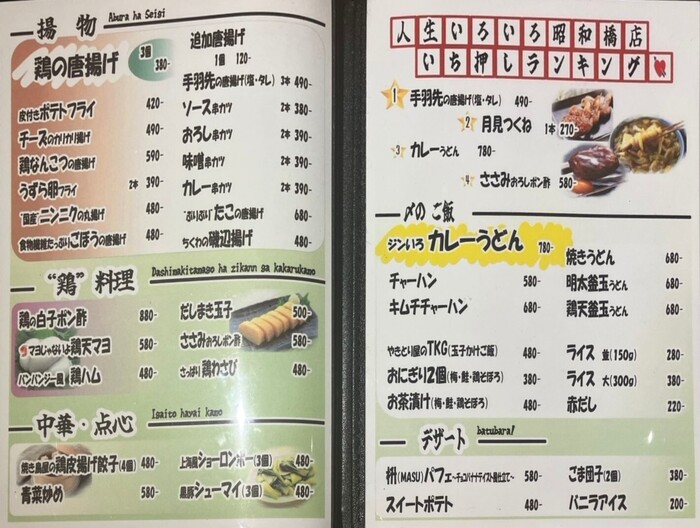 揚物 Abura ha Seigi
鶏の唐揚げ 3個 380-
追加唐揚げ
1個 120-
皮付きポテトフライ 420-
チーズのかりかり揚げ 490-
鶏なんこつの唐揚げ 590-
うずら卵フライ 2本 390-
"国産"ニンニクの丸揚げ 480-
食物繊維たっぷりごぼうの唐揚げ 480-
手羽先の唐揚げ(塩・タレ) 3本 490-
ソース串カツ 2本 380-
おろし串カツ 2本 390-
味噌串カツ 2本 390-
カレー串カツ 2本 390-
"ぷりぷり"たこの唐揚げ 680-
ちくわの磯辺揚げ 480-
"鶏"料理 Dashimakitamago ha zikann ga kakarukamo
鶏の白子ポン酢 880-
マヨじゃないよ鶏天マヨ 580-
バンバンジー風 鶏ハム 480-
だしまき玉子 500-
ささみおろしポン酢 580-
さっぱり 鶏わさび 480-
中華・点心 Igaito hayai kamo
焼き鳥屋の鶏皮揚げ餃子(4個) 480-
青菜炒め 580-
上海風ショーロンポー(3個) 480-
黒豚シューマイ(3個) 480-
人生いろいろ昭和橋店
いち押しランキング
1 手羽先の唐揚げ(塩・タレ) 490-
2 月見つくね 1本 270-
3 カレーうどん 780-
ささみおろしポン酢 580-
〆のご飯
ジンいろ カレーうどん 780-
チャーハン 580-
キムチチャーハン 680-
焼きうどん 680-
明太釜玉うどん 680-
鶏天釜玉うどん 680-
やきとり屋のTKG(玉子かけご飯) 480-
おにぎり2個(梅・鮭・鶏そぼろ) 380-
お茶漬け(梅・鮭・鶏そぼろ) 480-
ライス 並(150g) 280-
ライス 大(300g) 380-
赤だし 220-
デザート batubara!
枡(MASU)パフェ〜チョコバナナテイスト風仕立て〜 580-
スイートポテト 480-
ごま団子(2個) 380-
バニラアイス 200-